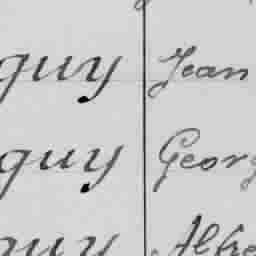 guy Jean
guy Georg
guy Alfre